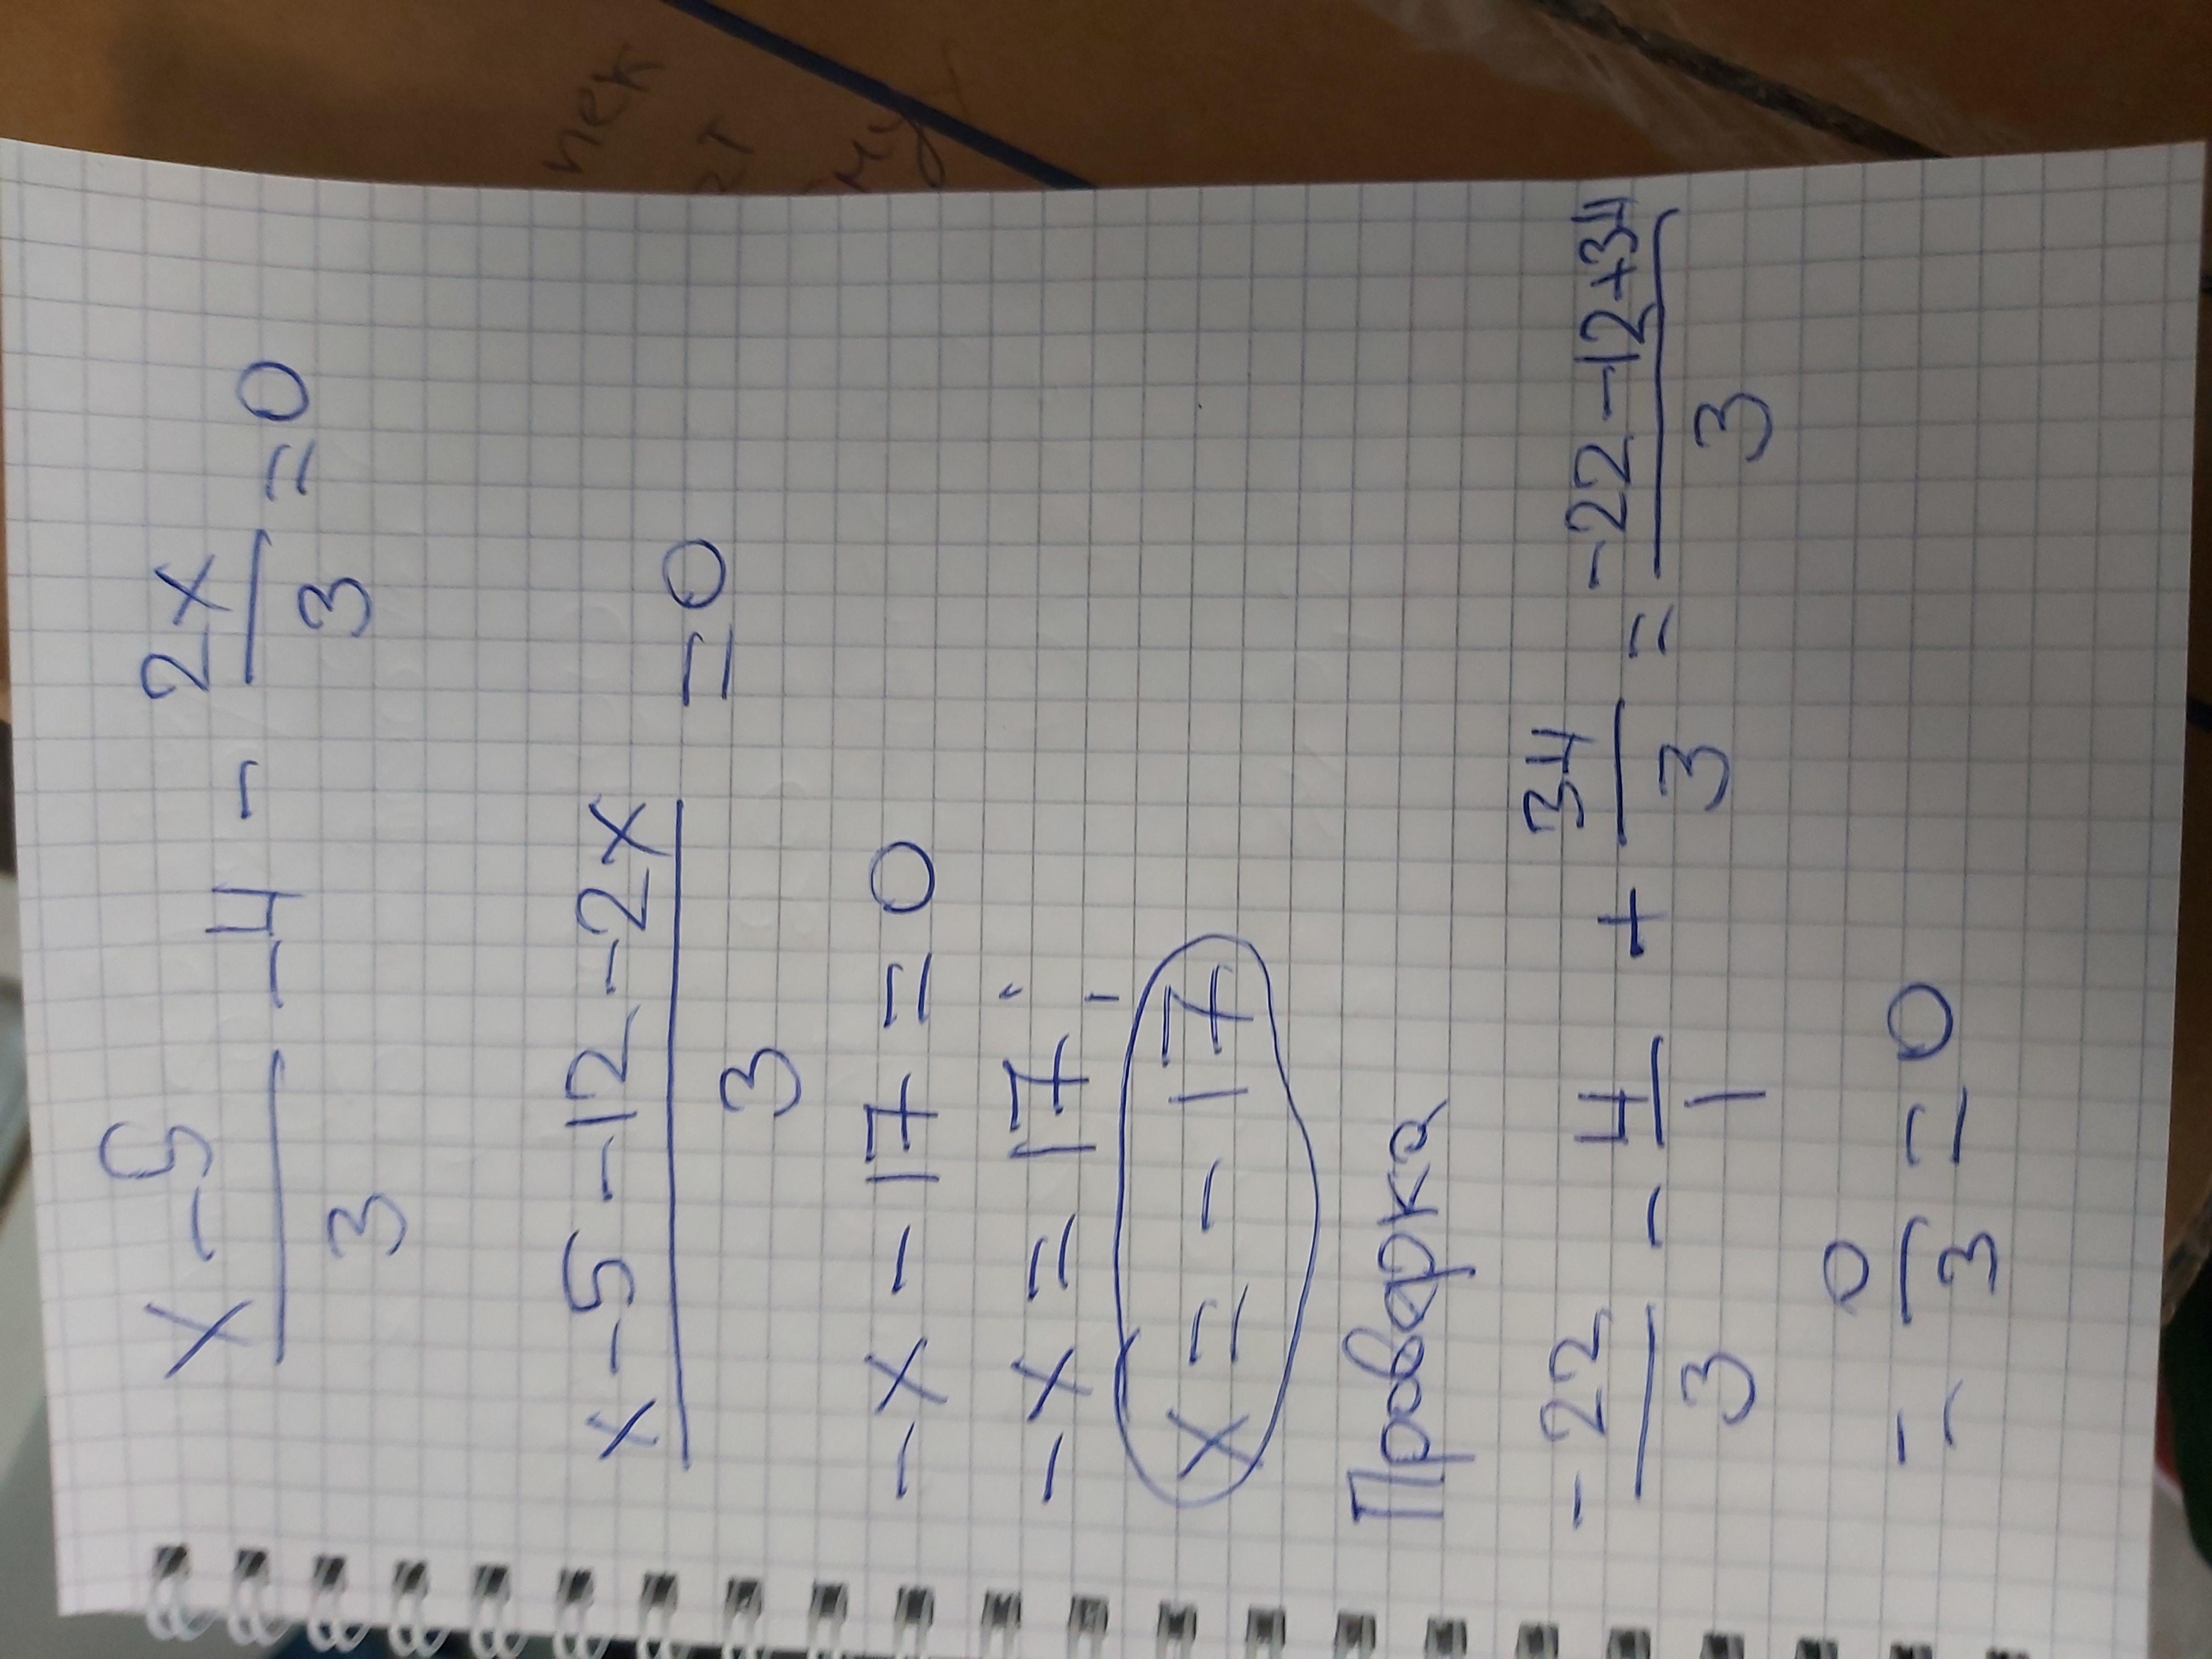 (x-5)/3 - 4 - 2x/3 = 0
(x-5-12-2x)/3 = 0
-x-17=0
-x=17
x=-17
Проверка
-22/3 - 4/1 + 34/3 = (-22-12+34)/3
= 0/3 = 0
пек